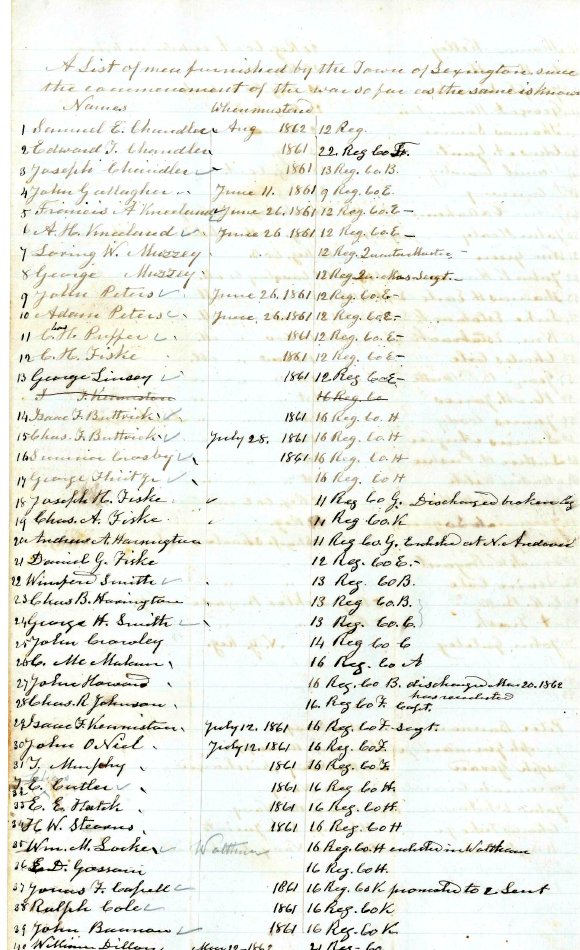 A List of men furnished by the Town of Lexington since
the commencement of the war so far as the same is known
Names When mustered
1 Samuel E. Chandler Aug 1862 12 Reg.
2 Edward T. Chandler 1861 22. Reg Co
3 Joseph Chandler 1861 13 Reg. Co. B.
4 John Gallagher June 11. 1861 9 Reg. Co. E.
5 Francis A Kneeland June 26. 1861 12 Reg. Co. E-
6 A. H. Kneeland June 26 1861 12 Reg. Co. E-
7 Loring W. Muzzey 12 Reg. Quarter Master-
8 George Muzzey 12 Reg. Sergt-
9 John Peters June 26. 1861 12 Reg. Co. E-
10 Adam Peters June. 26. 1861 12 Reg. Co. E-
11 C. H. Puffer 1861 12 Reg. Co. E-
12 C. H. Fiske 1861 12 Reg Co E-
13 George Linsey 1861 12 Reg Co. E-
16 Reg. Co
14 Isaac F. Buttrick 1861 16 Reg. Co. H
15 Chas. F. Buttrick July 28. 1861 16 Reg. Co. H
16 Crosby 1861 16 Reg. Co. H
17 George 16 Reg Co H
18 Joseph H. Fiske 11 Reg Co G. Discharged broken leg
19 Chas. A. Fiske 11 Reg Co. K
20 Andrew A. Harrington 11 Reg Co. G. Enlisted at N. Andover
21 Daniel G. Fiske 12 Reg. Co E.-
22 Smith 13 Reg. Co B.
23 Chas B. Harrington 13 Reg Co. B.
24 George H. Smith 13 Reg. Co.
25 John Crowley 14 Reg Co C
26 C. Mc Mahan 16 Reg. Co A
27 John Howard 16 Reg. Co B. discharged Mar 20. 1862
has reenlisted
28 Chas. R Johnson 16. Reg Co F. Capt.
29 Isaac F. Kenniston July 12. 1861 16 Reg Co F- Sergt.
30 John O Niel July 12. 1861 16 Reg. Co F.
31 T. Murphy 1861 16 Reg. Co F.
32 C. Cutler 1861 16 Reg. Co H.
33 E. E. Hatch 1861 16 Reg. Co H.
34 H. W. Stearns 1861 16 Reg Co H
35 Wm. M. Locke Waltham 16 Reg. Co. H enlisted in Waltham
36 E. D. 16 Reg. Co H.
37 Jonas F. Capell 1861 16 Reg. Co K promoted to 2 Leut
38 Ralph Cole 1861 16 Reg. Co K
39 John Bannon 1861 16 Reg. Co K
40 William Dillon Mar 12-1862 Reg- Co